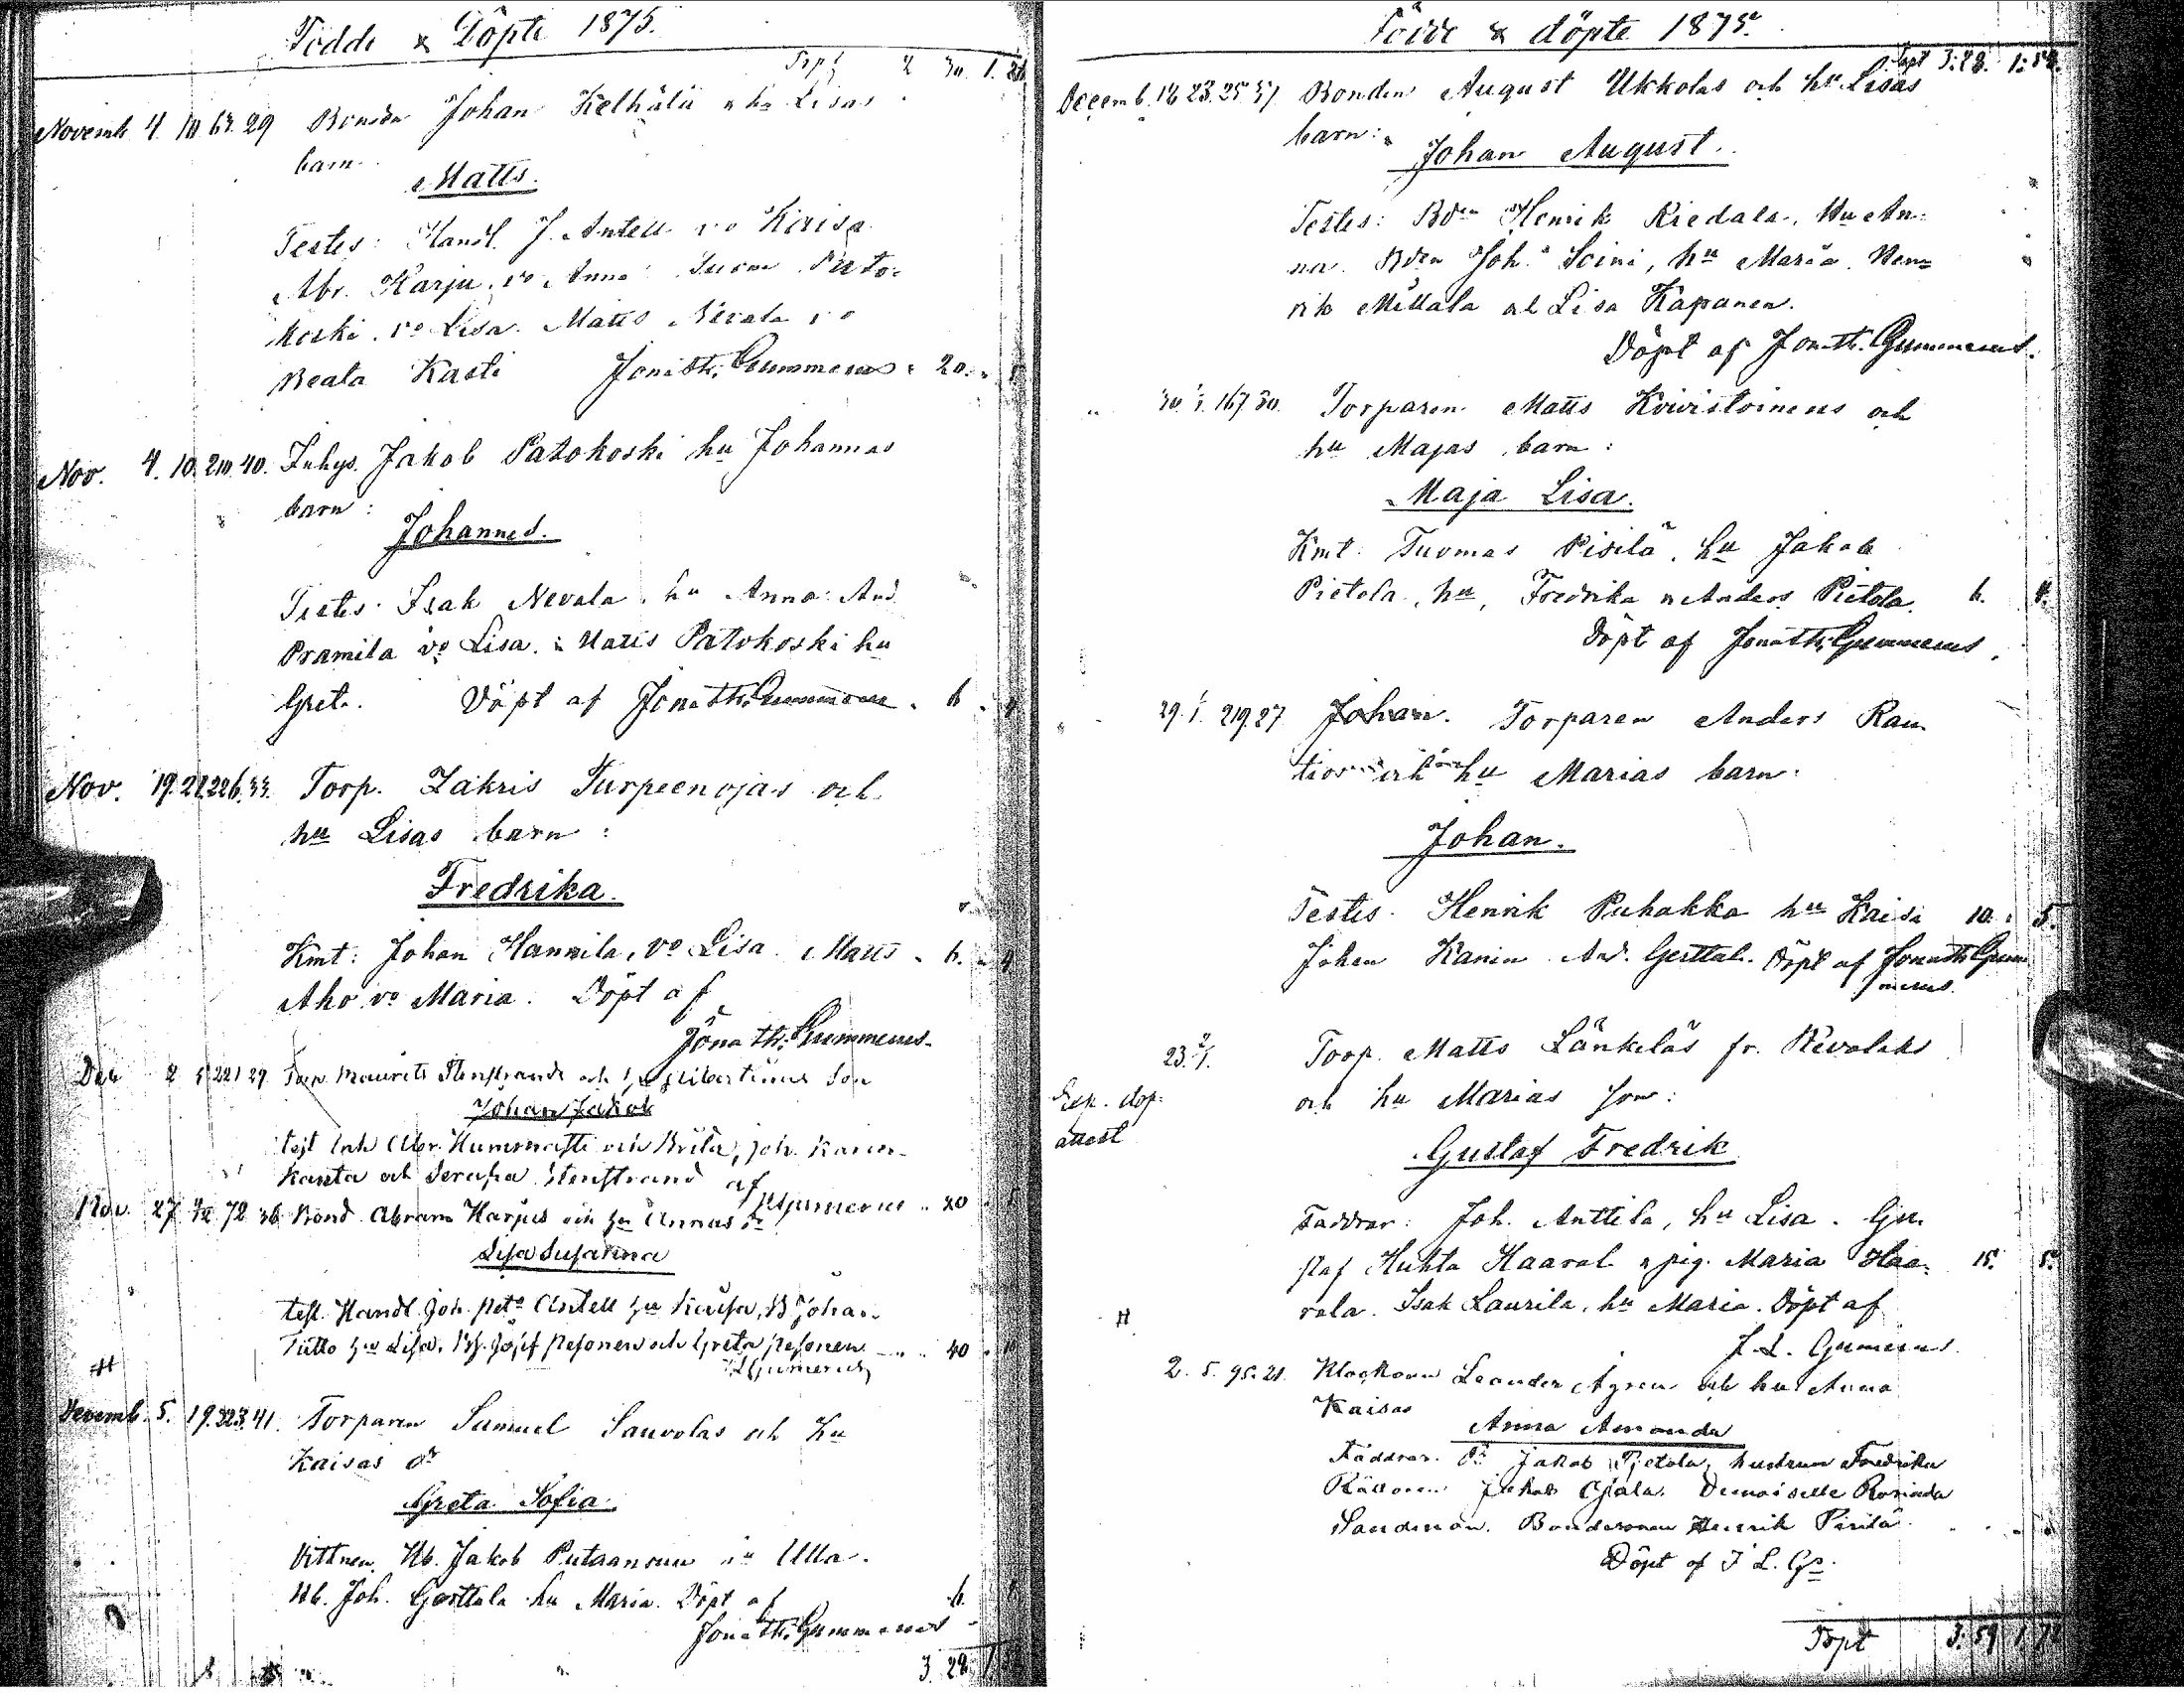 Födde & Döpte 1875.
Trpt
Novemb. 4. 10. 63. 29 Bonden Johan Kelhälä & hu Lisas
barn
Matts.
Testes: Handl. J. Antell vo Kaisa
Abr. Karju, vo Anna
koski. vo Lisa. Matts Nevala vo
Beata Kasti Jonath. Gummerus 20.
Nov. 4. 10. 210. 40. Inhys. Jakob Patokoski hu Johannas
barn:
Johannes.
Testes. Isak Nevala, hu Anna. And
Pramila vo Lisa. Matts Patokoski hu
Greta. Döpt af Jonath. Gummerus. 6
Nov. 19. 21. 226. 33. Torp. Zakris Turpeenojas och
hu Lisas barn:
Fredrika.
Kmt: Johan Hannila, vo Lisa. Matts 6. 4
Aho vo Maria. Döpt af
Jonath. Gummerus.
Dec 2 5 221 29. Torp. Maurits Stenstrands och hu Albertinas Son
Johan Jakob
test Inh Abr. och Brita, Joh.
Kanta och Serafia Stenstrand af
Gumerus 20 5
Nov. 27 72 36 Bond. Abram Karjus och hu Annas dr
Lisa Susanna
test. Handl. Joh. Antell hu Kaisa, B Johan
Tutto hu Lisa, Josef Pesonen och Greta Pesonen 40 10
Gumerus
Decemb. 5. 19. 223. 41. Torparen Samuel Sauvolas och hu
Kaisas dr
Greta Sofia.
Vittnen, Hb. Jakob Putaansuu hu Ulla.
Hb. Joh. Gerttala hu Maria. Döpt af 6.
Jonath. Gummerus
3. 28.
Födde & döpte 1875.
Trpt 3:28. 1:58.
Decemb. 18 23. 25 57 Bonden August Ukkolas och hu Lisas
barn:
Johan August.
Testes: Bden Henrik Riedala. Hu An-
na. Bden Joh. Soini, hu Maria. Hen-
rik Millala och Lisa Kapanen.
Döpt af Jonath. Gummerus.
30. 1/1. 167. 30. Torparen Matts Kivistoinens och
hu Majas barn:
Maja Lisa.
Kmt. Tuomas Pirilä. hu Jakob
Pietola, hu, Fredrika & Anders Pietola. 6. 4.
Döpt af Jonath. Gummerus.
29. 1/1. 219. 27 Johan. Torparen Anders Rau-
tio hu Marias barn:
Johan.
Testes. Henrik Puhakka hu Kaisa 10. 5.
Johan Kanin And. Gerttala. Döpt af Jonath Gum
merus.
23. 2/1. Torp. Matts Länkeläs fr. Revolaks
och hu Marias son:
dop-
attest
Gustaf Fredrik
Faddrar: Joh. Anttila, hu Lisa. Gu-
staf Huhta Haaral & pig. Maria Haa- 15. 5.
rala. Isak Laurila, hu Maria. Döpt af
J. L. Gumerus.
2. 5. 95. 21. Klockaren Leander Ågren och hu Anna
Kaisas
Anna Amanda
Faddrar. Jakob Pietola, hustrun Fredrika
Rättaren Jakob Ojala. Demoiselle Rosinda
Sandman. Bondesonen Henrik Pirilä.
Döpt af J L. Gs.
Trpt 3. 59 1 78